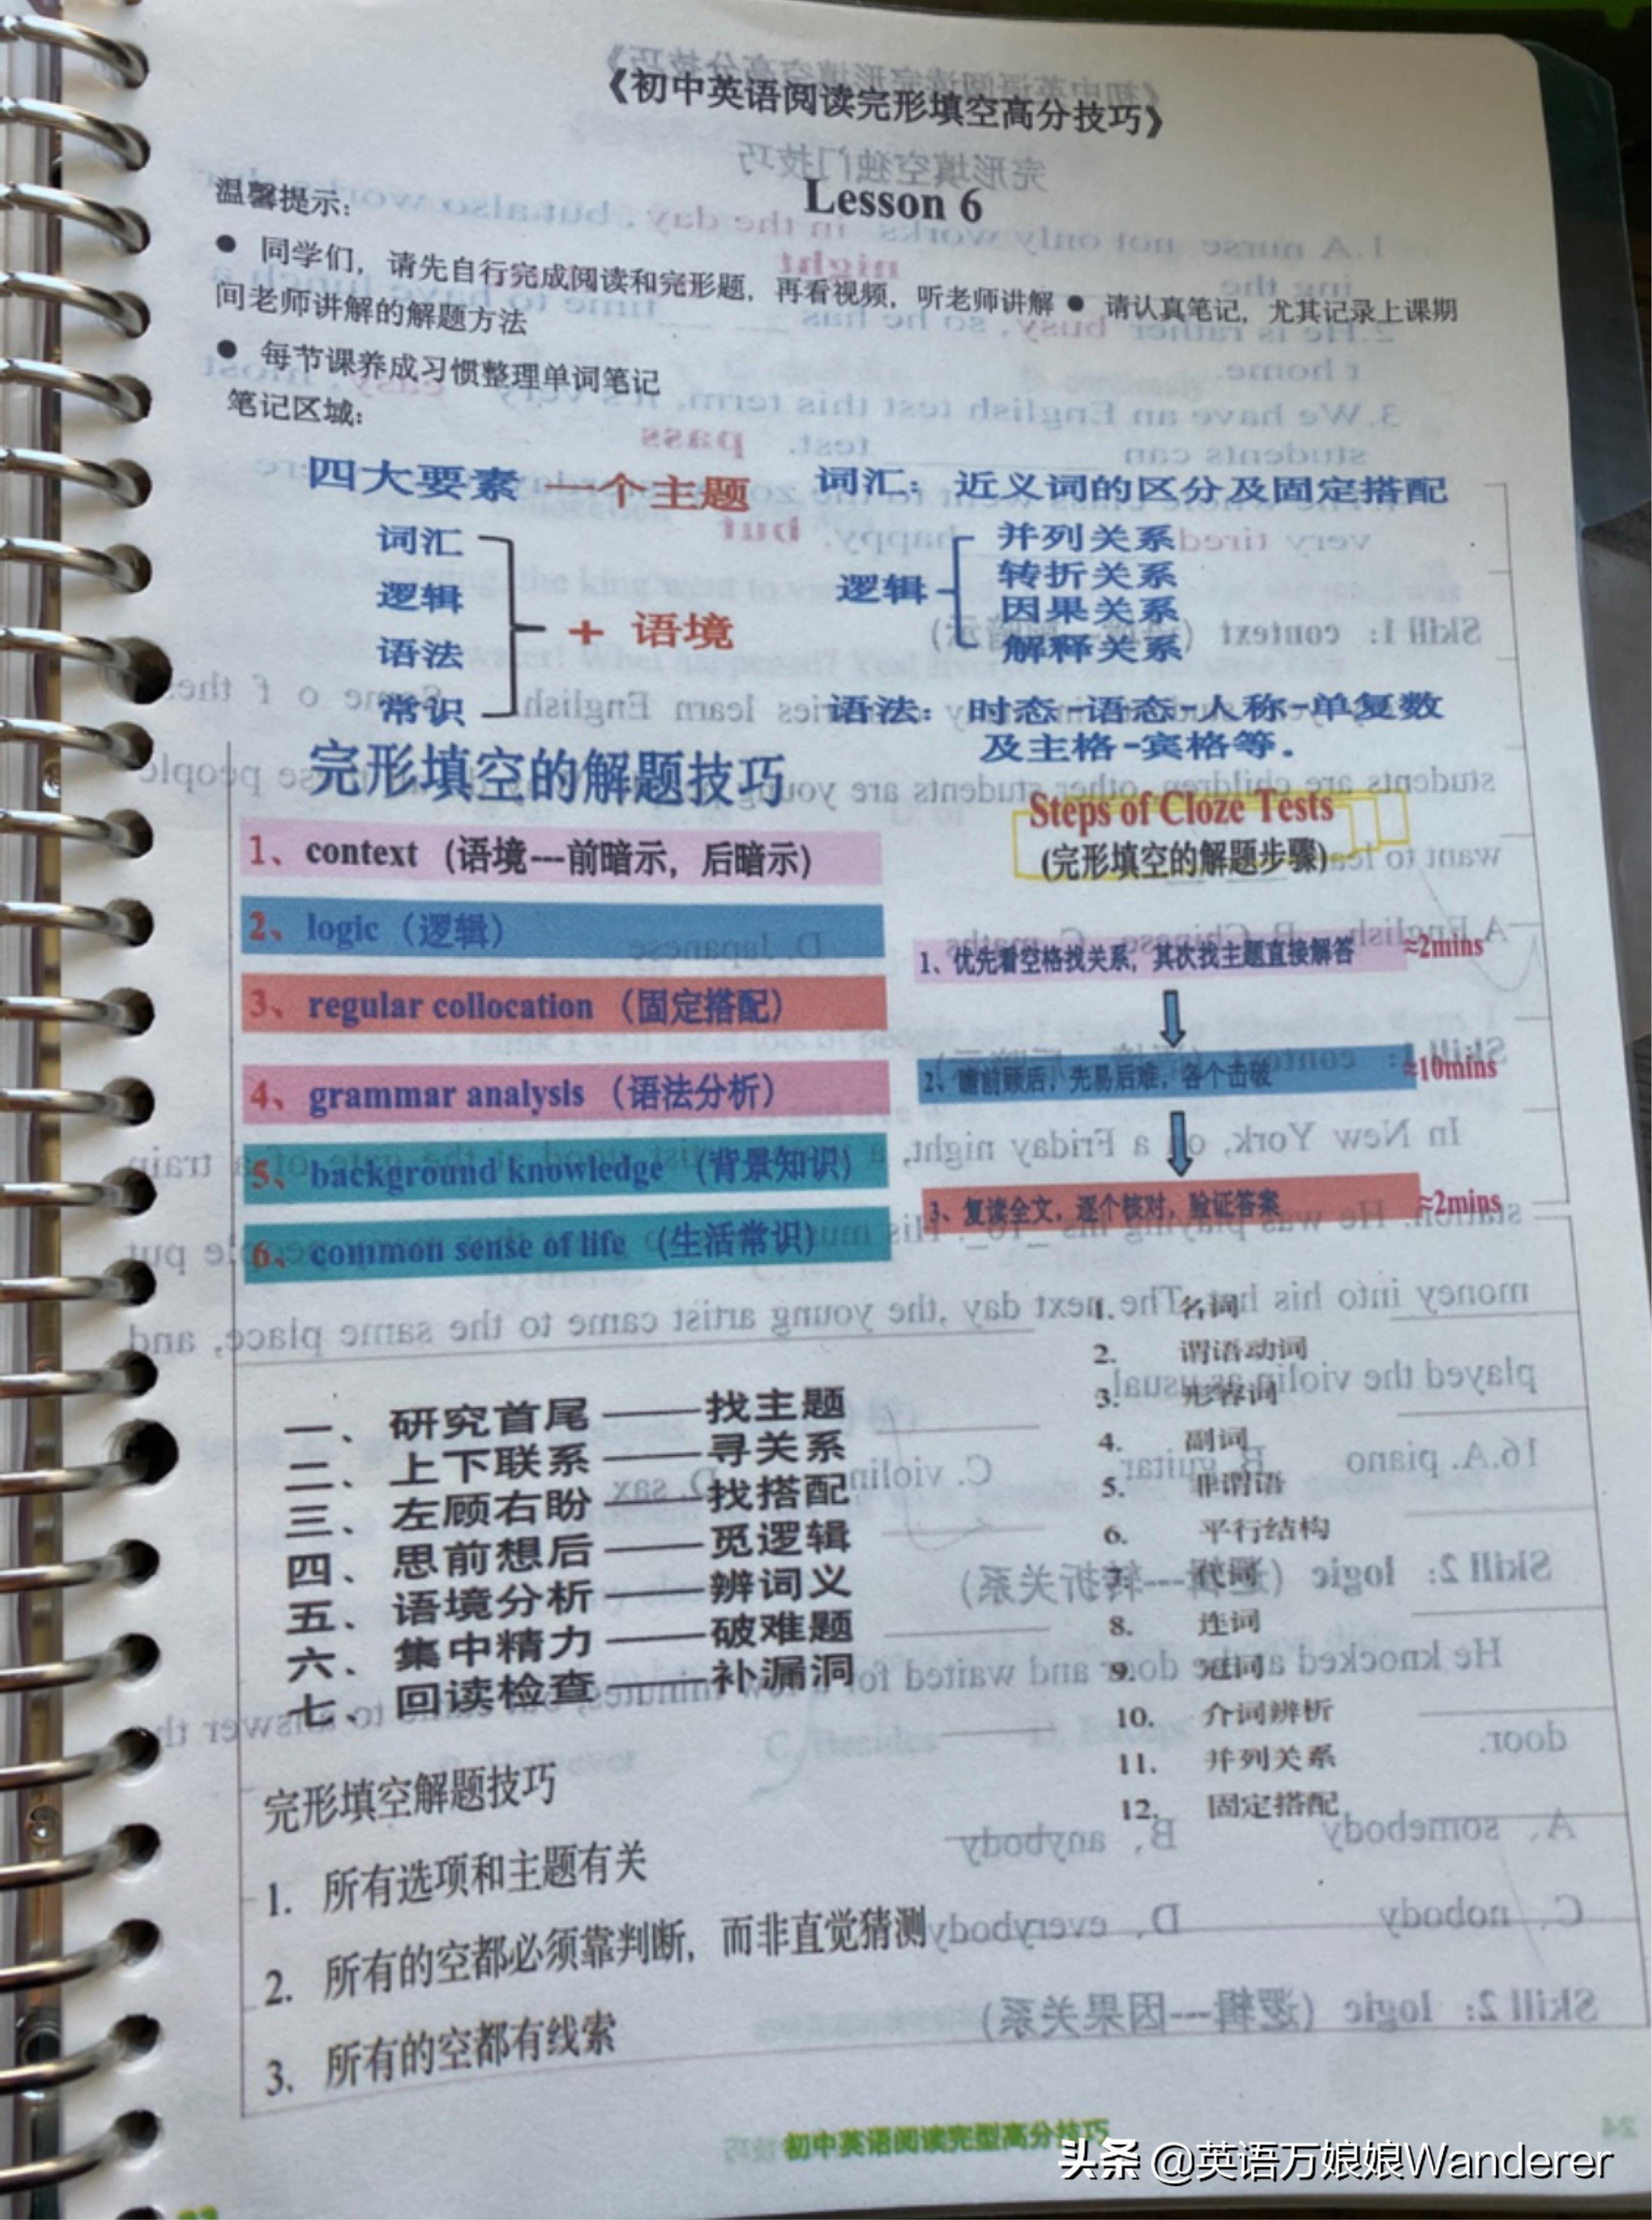 《初中英语阅读完形填空高分技巧》
Lesson 6
温馨提示：
● 同学们，请先自行完成阅读和完形题，再看视频，听老师讲解 ● 请认真笔记，尤其记录上课期
间老师讲解的解题方法
● 每节课养成习惯整理单词笔记
笔记区域：
四大要素 一个主题
词汇
逻辑
语法
常识
+ 语境
词汇：近义词的区分及固定搭配
逻辑
并列关系
转折关系
因果关系
解释关系
语法：时态-语态-人称-单复数
及主格-宾格等.
完形填空的解题技巧
1、context（语境---前暗示，后暗示）
2、logic（逻辑）
3、regular collocation（固定搭配）
4、grammar analysis（语法分析）
5、background knowledge（背景知识）
6、common sense of life（生活常识）
Steps of Cloze Tests
(完形填空的解题步骤)
1、优先看空格找关系，其次找主题直接解答 ≈2mins
2、瞻前顾后，先易后难，各个击破 ≈10mins
3、复读全文，逐个核对，验证答案 ≈2mins
一、研究首尾——找主题
二、上下联系——寻关系
三、左顾右盼——找搭配
四、思前想后——觅逻辑
五、语境分析——辨词义
六、集中精力——破难题
七、回读检查——补漏洞
1. 名词
2. 谓语动词
3. 形容词
4. 副词
5. 非谓语
6. 平行结构
7. 代词
8. 连词
9. 冠词
10. 介词辨析
11. 并列关系
12. 固定搭配
完形填空解题技巧
1. 所有选项和主题有关
2. 所有的空都必须靠判断，而非直觉猜测
3. 所有的空都有线索
初中英语阅读完型高分技巧
头条 @英语万娘娘Wanderer